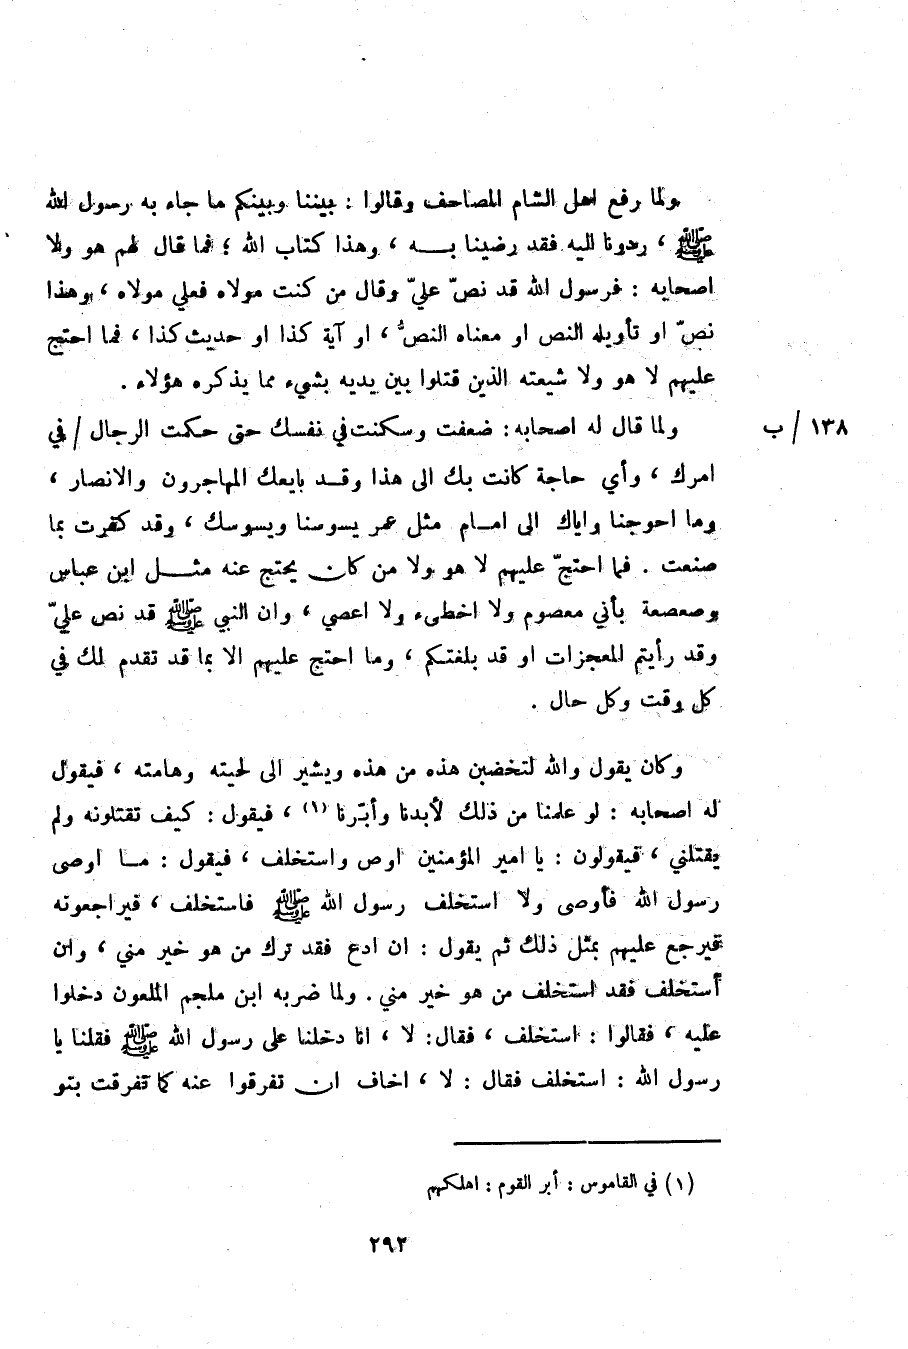 ولما رفع اهل الشام المصاحف وقالوا : بيننا وبينكم ما جاء به رسول الله
ﷺ ، ردونا اليه فقد رضينا بـــه ، وهذا كتاب الله ؛ فما قال لهم هو ولا
اصحابه : فرسول الله قد نصّ عليّ وقال من كنت مولاه فعلي مولاه ، وهذا
نصّ او تأويله النص او معناه النصُّ ، او آية كذا او حديث كذا ، فما احتج
عليهم لا هو ولا شيعته الذين قتلوا بين يديه بشيء مما يذكره هؤلاء .
ولما قال له اصحابه : ضعفت وسكنت في نفسك حتى حكمت الرجال / في ١٣٨ / ب
امرك ، وأي حاجة كانت بك الى هذا وقـد بايعك المهاجرون والانصار ،
وما احوجنا واياك الى امـام مثل عمر يسوسنا ويسوسك ، وقد كفرت بما
صنعت . فما احتجّ عليهم لا هو ولا من كان يحتج عنه مثـــل ابن عباس
وصعصعة بأني معصوم ولا اخطىء ولا اعصي ، وان النبي ﷺ قد نص عليّ
وقد رأيتم المعجزات او قد بلغتكم ، وما احتج عليهم الا بما قد تقدم لك في
كل وقت وكل حال .
وكان يقول والله لتخضبن هذه من هذه ويشير الى لحيته وهامته ، فيقول
له اصحابه : لو علمنا من ذلك لأبدنا وأبّرنا (١) ، فيقول : كيف تقتلونه ولم
يقتلني ، فيقولون : يا امير المؤمنين اوص واستخلف ، فيقول : مـا اوصى
رسول الله فأوصى ولا استخلف رسول الله ﷺ فاستخلف ، فيراجعونه
فيرجع عليهم بمثل ذلك ثم يقول : ان ادع فقد ترك من هو خير مني ، وان
أستخلف فقد استخلف من هو خير مني . ولما ضربه ابن ملجم الملعون دخلوا
عليه ، فقالوا : استخلف ، فقال : لا ، انا دخلنا على رسول الله ﷺ فقلنا يا
رسول الله : استخلف فقال : لا ، اخاف ان تفرقوا عنه كما تفرقت بنو
(١) في القاموس : أبر القوم : اهلكهم
٢٩٢